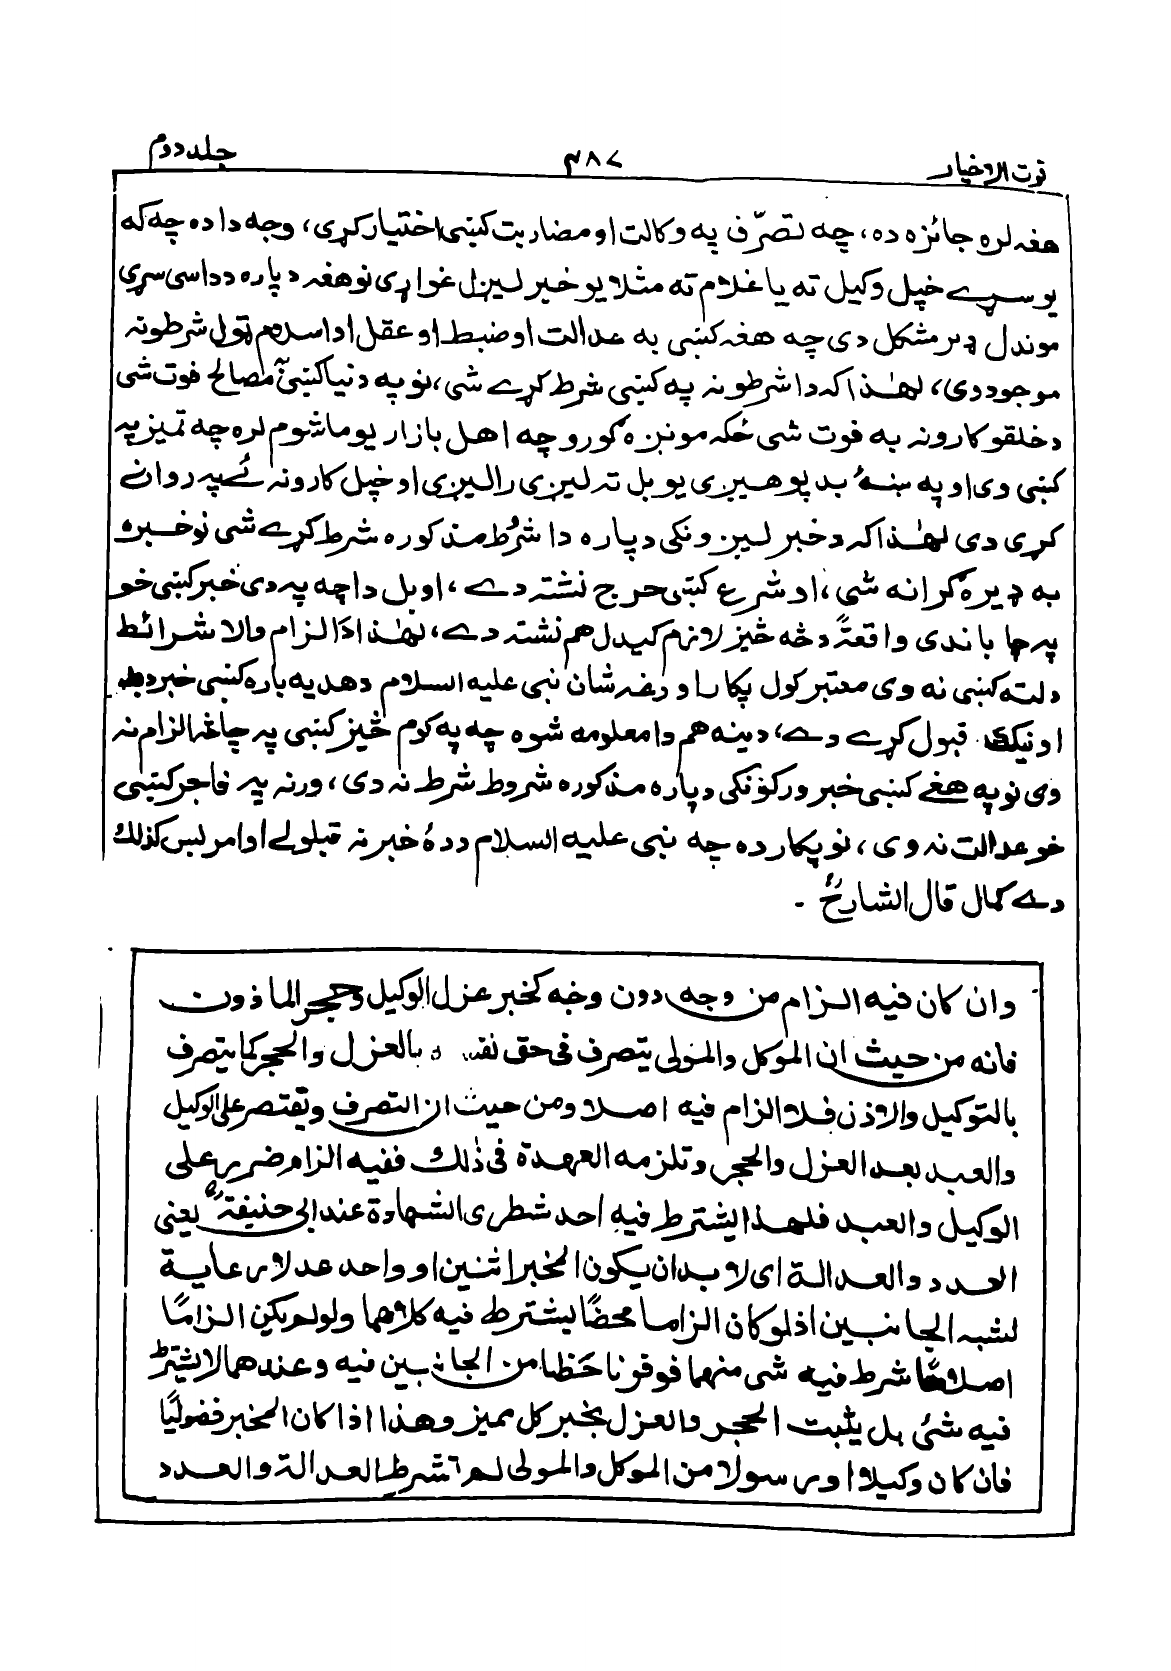 قوت الاخیار ۳۸۷ جلد دوم
هغه لره جائزه ده، چه تصرّف په وکالت او مضاربت کښی اختیار کړی، وجه دا ده چه که
یو سړے خپل وکیل ته یا غلام ته مثلا یو خبر لیږل غواړی نو هغه دپاره د داسی سړی
موندل ډیر مشکل دی چه هغه کښی به عدالت او ضبط او عقل او اسلام ټول شرطونه
موجود دی، لهٰذا که دا شرطونه په کښی شرط کړے شی، نو په دنیا کښی مصالح فوت شی
د خلقو کارونه به فوت شی ځکه مونږه ګورو چه اهل بازار یو ماشوم لره چه تمیز په
کښی وی او په ښهٔ بد پوهیږی یو بل ته لیږی رالیږی او خپل کارونه ئے په روانے
کړی دی لهٰذا که د خبر لیږونکی دپاره دا شرط مذکوره شرط کړے شی نو خبره
به ډیره ګرانه شی، او شرع کښی حرج نشته دے، او بل دا چه په دی خبر کښی خو
په چا باندی واقعةً دڅه څیز لازم کیدل هم نشته دے، لهٰذا دَا الزام والا شرائط
دلته کښی نه وی معتبر کول پکار او دغه شان نبی علیه السلام د هدیه باره کښی خبر د بد
او نیک قبول کړے دے، دینه هم دا معلومه شوه چه په کوم څیز کښی په چا څه الزام نه
وی نو په هغے کښی خبر ورکونکی دپاره مذکوره شروط شرط نه دی، ورنه په فاجر کښی
خو عدالت نه وی، نو پکار ده چه نبی علیه السلام ددهٔ خبر نه قبلولے او امر لیس کذلك
دے کمال قال الشارحؒ -
وان کان فیه الزام من وجه دون وجه کخبر عزل الوکیل وحجر الماذون
فانه من حیث ان الموکل والمولی یتصرف فی حق نفسه بالعزل والحجر کما یتصرف
بالتوکیل والاذن فلا الزام فیه اصلا ومن حیث ان التصرف ویقتصر علی الوکیل
والعبد بعد العزل والحجر وتلزمه العهدة فی ذٰلك ففیه الزام ضرر علی
الوکیل والعبد فلهذا یشترط فیه احد شطری الشهادة عند ابی حنیفةؒ یعنی
العدد والعدالة ای لا بد ان یکون المخبر اثنین او واحد عدلا رعایة
لشبه الجانبین اذ لو کان الزاما محضًا یشترط فیه کلاهما ولو لم یکن الزامًا
اصلا ما شرط فیه شی منهما فوفرنا حَظا من الجانبین فیه وعندهما لا یشترط
فیه شئ بل یثبت الحجر والعزل بخبر کل ممیز وهذا اذا کان المخبر فضولیًا
فان کان وکیلا او رسولا من الموکل والمولی لم تشرط العدالة والعدد